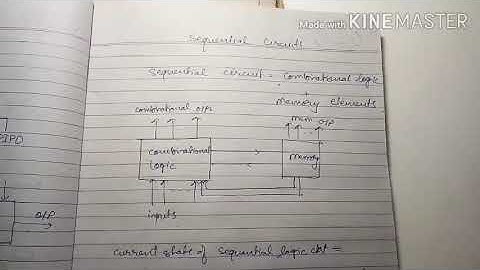 Made with KINEMASTER
Sequential Circuits
Sequential circuit = Combinational logic
+
Memory elements
combinational o/p
mem o/p
combinational
logic
memory
inputs
o/p
current state of sequential logic ckt =